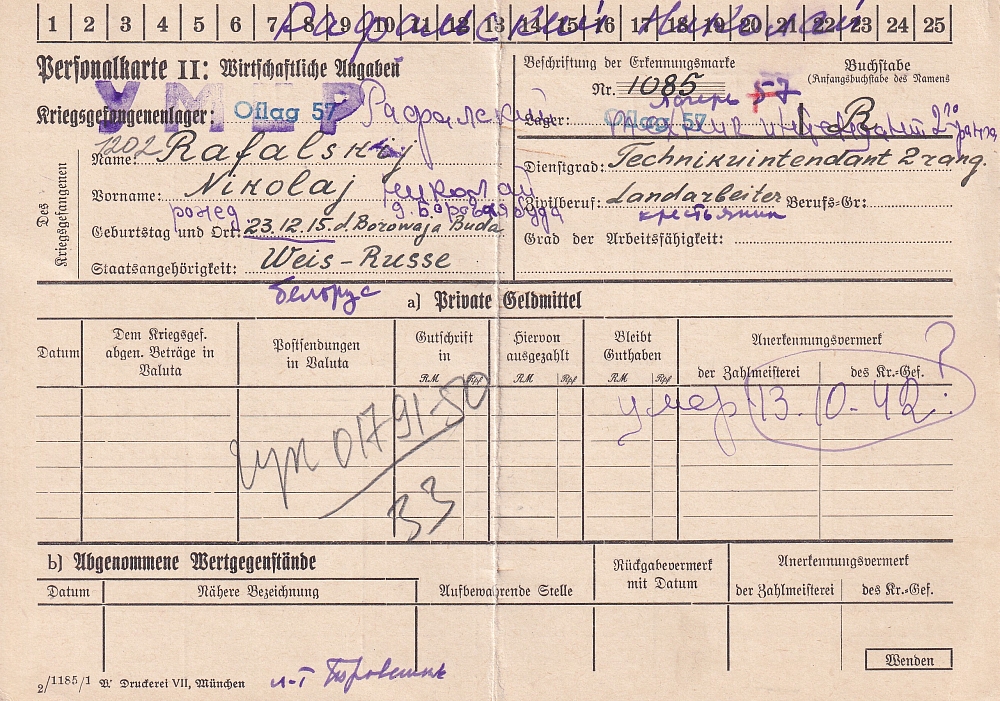 1 2 3 4 5 6 7 8 9 10 11 12 13 14 15 16 17 18 19 20 21 22 23 24 25
Рафальский Николай
Personalkarte II: Wirtschaftliche Angaben
Beschriftung der Erkennungsmarke
Nr. 1085
Buchstabe
(Anfangsbuchstabe des Namens
УМЕР
Kriegsgefangenenlager: Oflag 57 Рафалский
лагерь 57
Lager: Oflag 57
техник интендант 2го ранга
Des Kriegsgefangenen
1202
Name: Rafalskij
Dienstgrad: Technikuintendant 2 rang.
Vorname: Nikolaj Николай
Zivilberuf: Landarbeiter Berufs-Gr:
крестьянин
д. Боровая Буда
Geburtstag und Ort: 23.12.15. d. Borowaja Buda
Grad der Arbeitsfähigkeit:
Staatsangehörigkeit: Weis-Russe
белорус
a) Private Geldmittel
Datum
Dem Kriegsgef. abgen. Beträge in Valuta
Postsendungen in Valuta
Gutschrift in
Hiervon ausgezahlt
Bleibt Guthaben
Anerkennungsvermerk
der Zahlmeisterei
des Kr.-Gef.
RM Rpf RM Rpf RM Rpf
?
умер 13.10.42г.
01791-50
33
b) Abgenommene Wertgegenstände
Datum
Nähere Bezeichnung
Aufbewahrende Stelle
Rückgabevermerk mit Datum
Anerkennungsvermerk
der Zahlmeisterei
des Kr.-Gef.
Wenden
2/1185/1 Druckerei VII, München
л-т